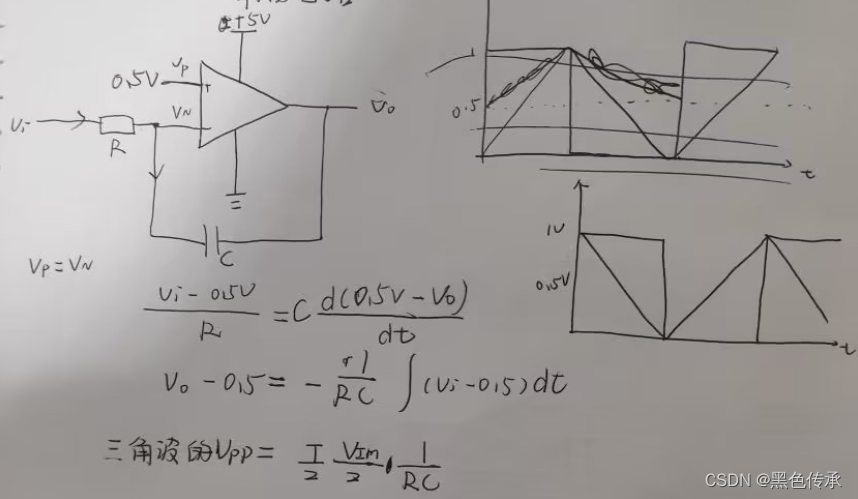 +5V
0.5V
VP
+
Vi
VN
-
Vo
R
C
1
0.5
t
1V
0.5V
t
VP=VN
Vi-0.5V/R = C d(0.5V-Vo)/dt
Vo-0.5= - 1/RC ∫(Vi-0.5)dt
三角波的VPP= T/2 VIm/2 · 1/RC
CSDN @黑色传承